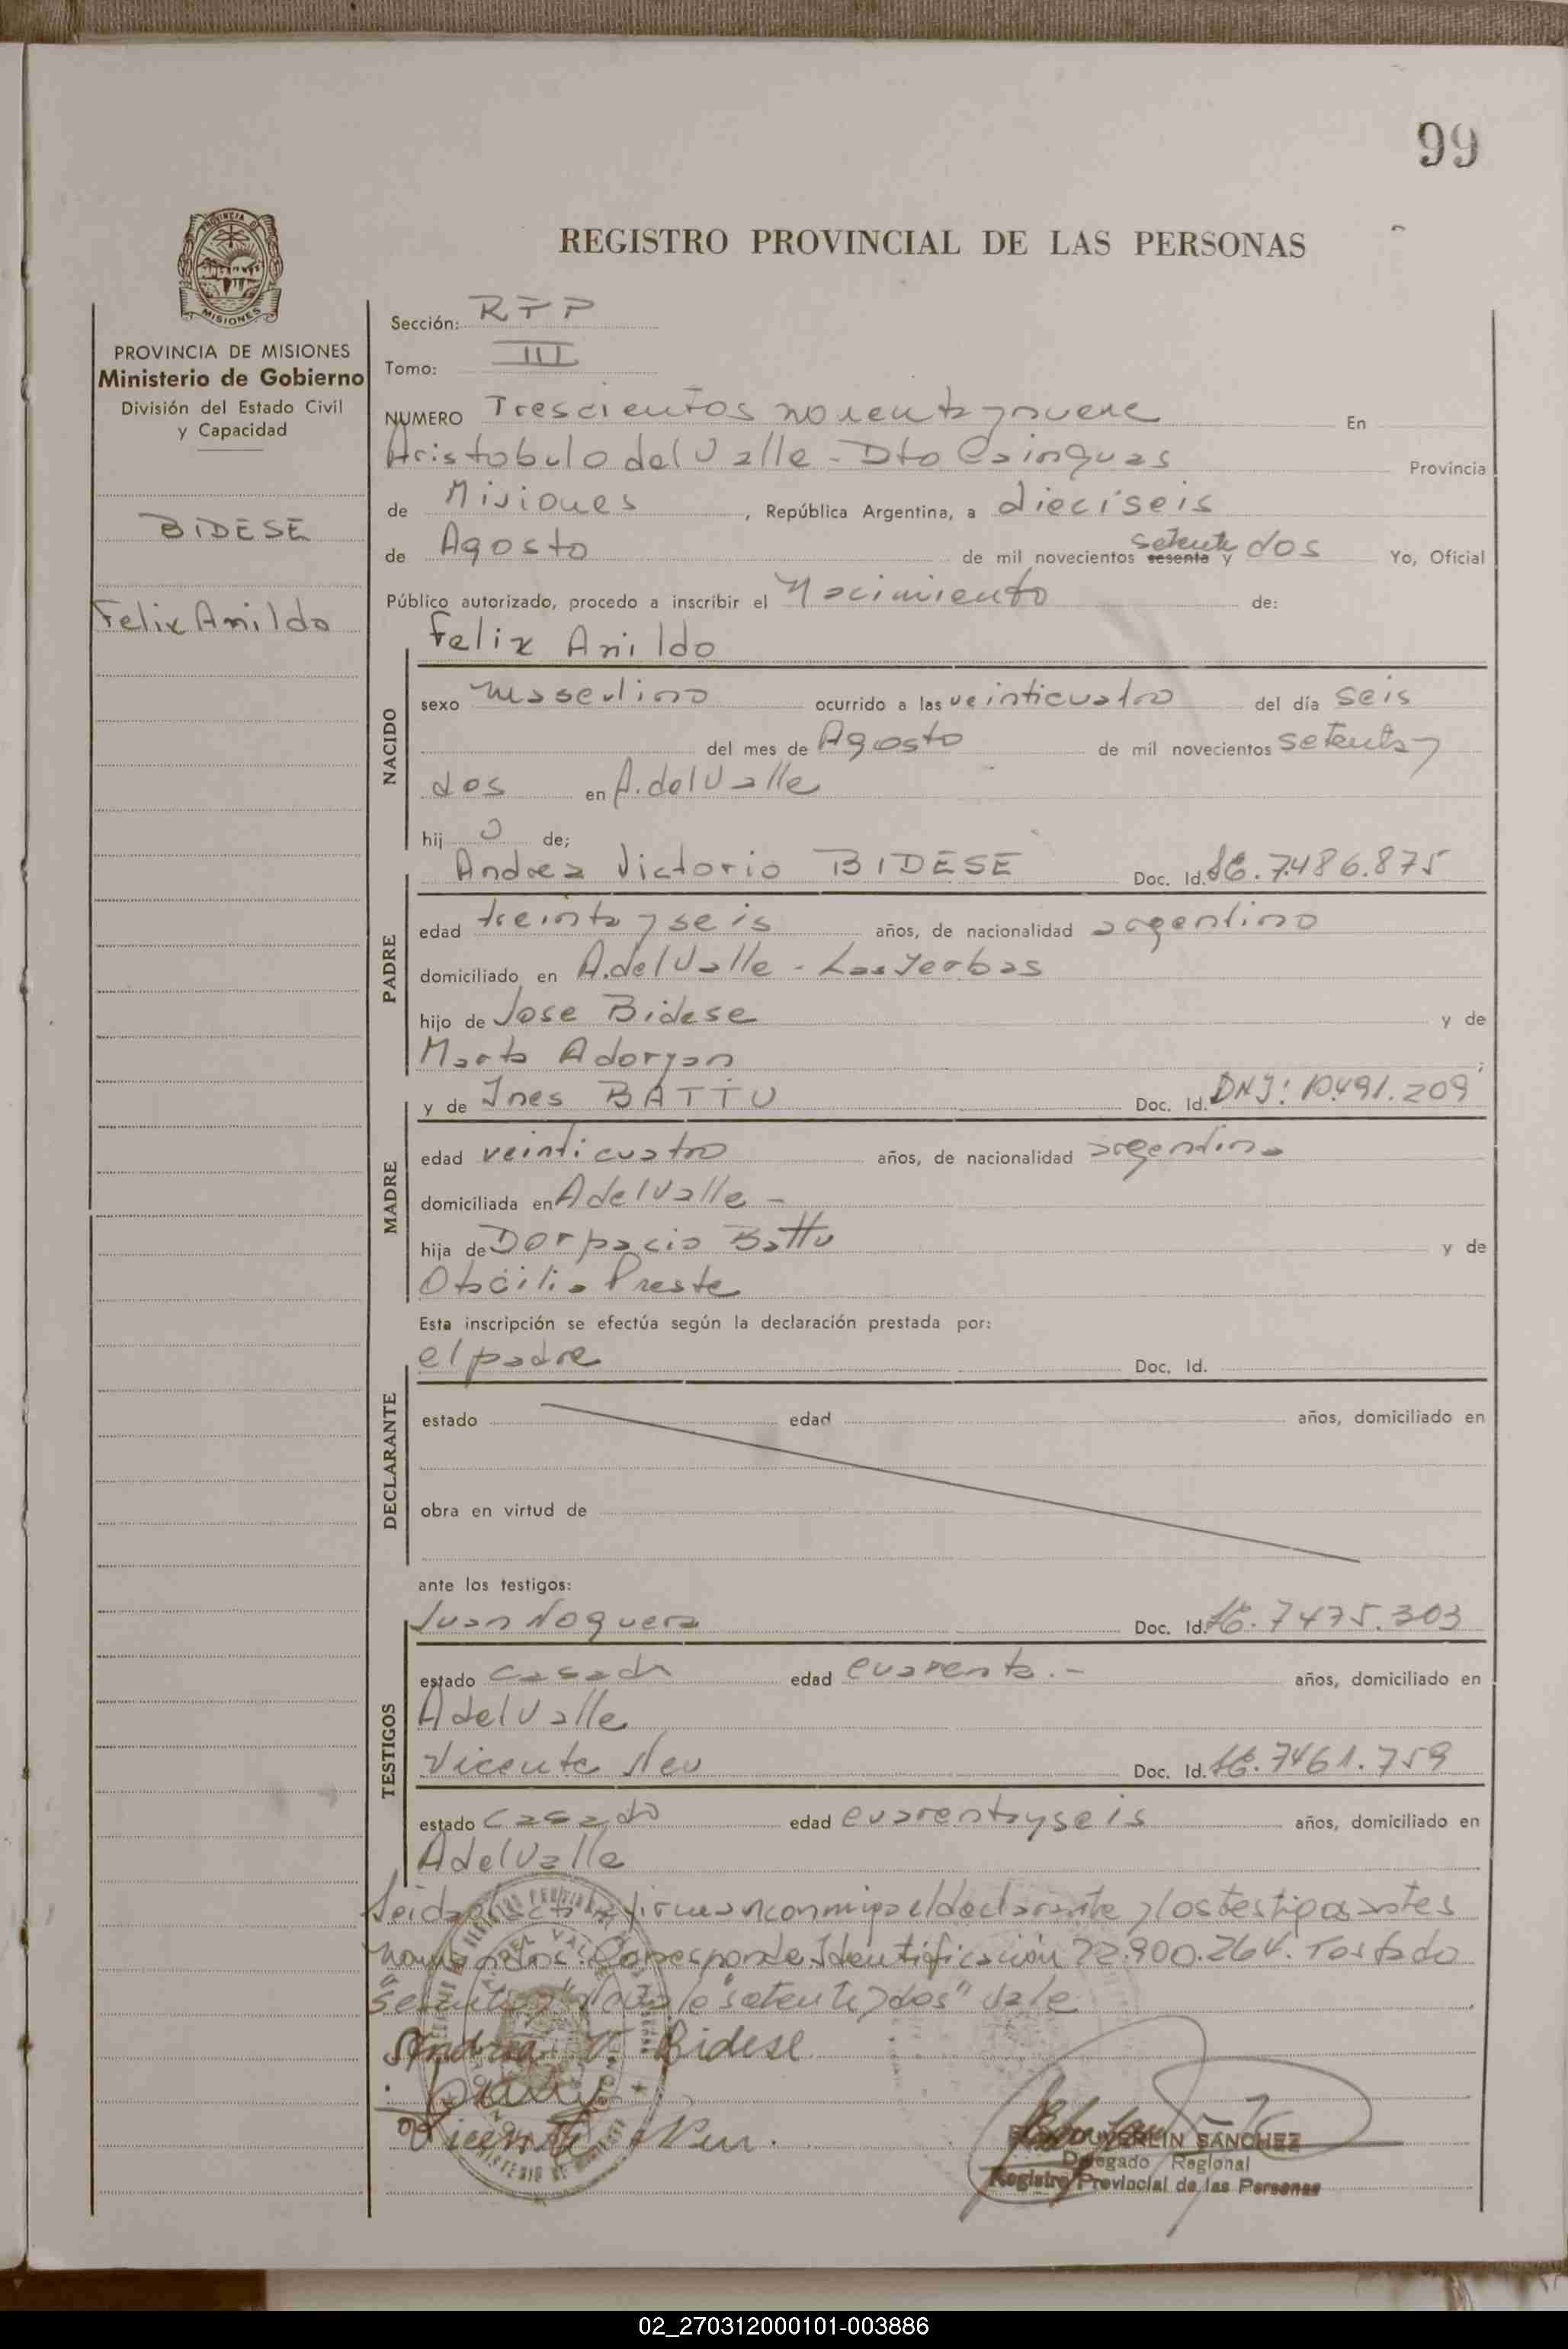 99
REGISTRO PROVINCIAL DE LAS PERSONAS
PROVINCIA DE
MISIONES
PROVINCIA DE MISIONES
Ministerio de Gobierno
División del Estado Civil
y Capacidad
BIDESE
Felix Anildo
Sección: R P P
Tomo: III
NUMERO Trescientos noventa y nueve En
Aristobulo del Valle - Dto Cainguas Provincia
de Misiones, República Argentina, a dieciseis
de Agosto de mil novecientos sesenta setenta y dos Yo, Oficial
Público autorizado, procedo a inscribir el Nacimiento de:
Felix Anildo
NACIDO
sexo masculino ocurrido a las veinticuatro del día seis
del mes de Agosto de mil novecientos setenta y
dos en A. del Valle
hij o de;
PADRE
Andrez Victorio BIDESE Doc. Id. LE. 7.486.875
edad treinta y seis años, de nacionalidad argentino
domiciliado en A. del Valle - Las Yerbas
hijo de Jose Bidese y de
Marta Adoryan
MADRE
y de Ines BATTU Doc. Id. DNJ: 10.491.209
edad veinticuatro años, de nacionalidad argentina
domiciliada en A del Valle -
hija de Dorpacio Battu y de
Otacilia Preste
Esta inscripción se efectúa según la declaración prestada por:
DECLARANTE
el padre Doc. Id.
estado edad años, domiciliado en
obra en virtud de
ante los testigos:
TESTIGOS
Juan Noguera Doc. Id. LE. 7475.303
estado casado edad cuarenta.- años, domiciliado en
A del Valle
Vicente Neu Doc. Id. LE. 7461.759
estado casado edad cuarenta y seis años, domiciliado en
A del Valle
Leida el acta firman conmigo el declarante y los testigos antes
nombrados. Corresponde Identificación 22.900.264. Testado
"setenta y dos" vale
Andrez V. Bidese
Vicente Neu.
SANCHEZ
Delegado Regional
Registro Provincial de las Personas
02_270312000101-003886